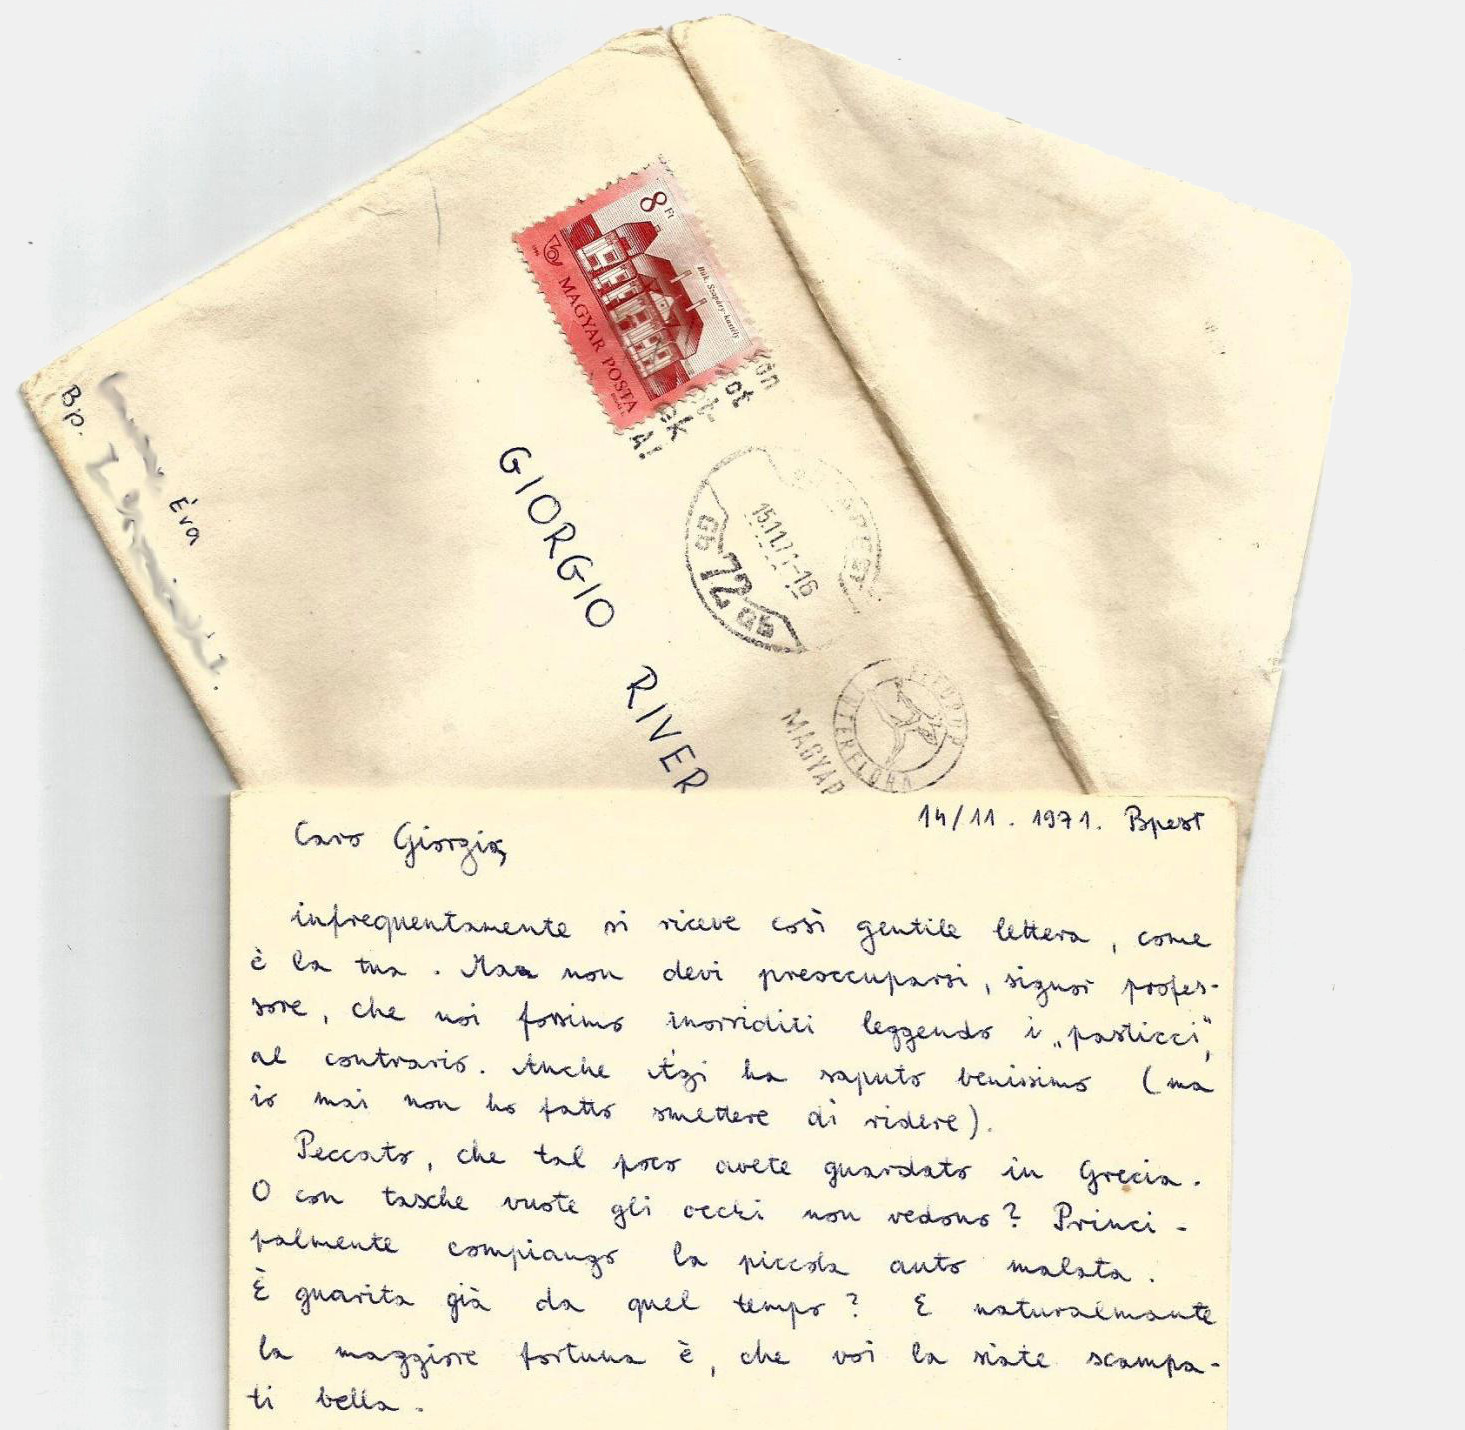 8 Ft
Bük. Szapáry-kastély
MAGYAR POSTA
Bp.
Éva
GIORGIO RIVER
15.11.71-16
72
MAGYAR
14/11. 1971. Bpest
Caro Giorgio,
infrequentamente si riceve così gentile lettera, come
è la tua. Ma non devi preoccuparsi, signor profes-
sore, che noi fossimo inorriditi leggendo i „pasticci”,
al contrario. Anche Ági ha saputo benissimo (ma
io mai non ho fatto smettere di ridere).
Peccato, che tal poco avete guardato in Grecia.
O con tasche vuote gli occhi non vedono? Princi-
palmente compiango la piccola auto malata.
È guarita già da quel tempo? E naturalmante
la maggiore fortuna è, che voi la siate scampa-
ti bella.